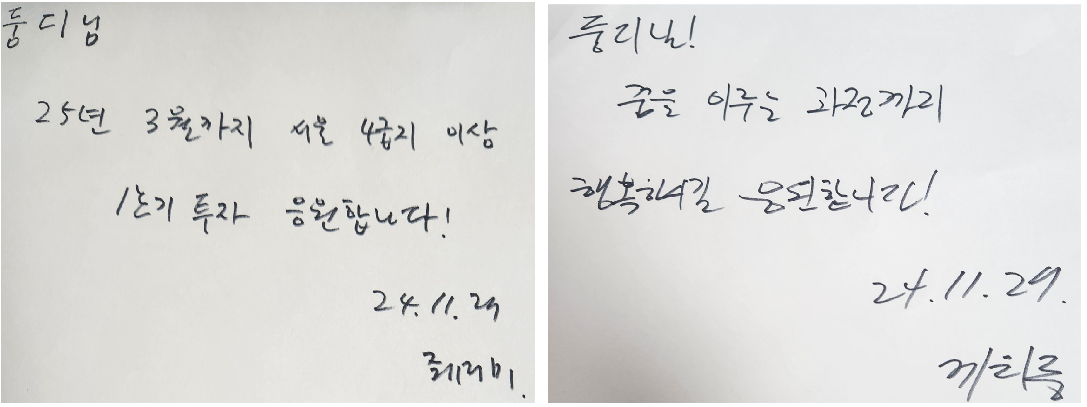 둥디님
25년 3월까지 서울 4급지 이상
1호기 투자 응원합니다!
24.11.29
프레미.
둥디님!
꿈을 이루는 과정까지
행복하시길 응원합니다!
24.11.29.
게리롱